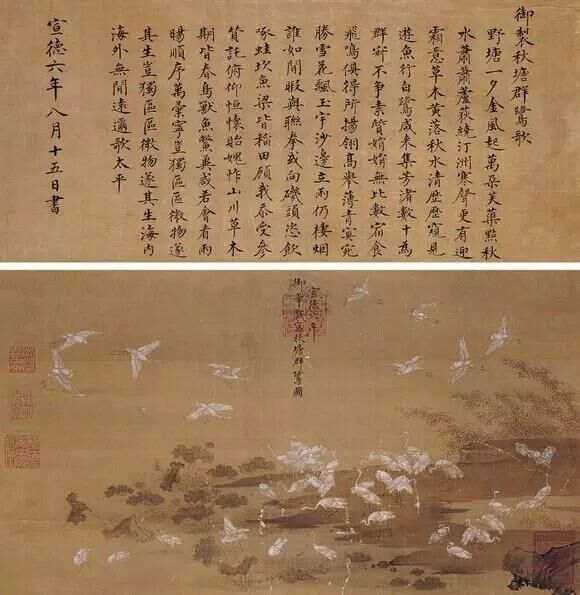 御製秋塘群鷺歌
野塘一夕金風起萬朵芙蕖點秋
水蕭蕭蘆荻繞汀洲寒聲更有迎
霜意草木黃落秋水清歷歷窺見
遊魚行白鷺咸來集芳渚數十為
群寂不爭素質娟娟無比數宿食
飛鳴俱得所揚翎高舉薄青冥宛
勝雪花飄玉宇沙邊立雨仍棲烟
誰如閒暇與聯拳或向磯頭恣飲
啄蛙坎魚梁皆稻田顧我忝受參
贊託俯仰恒懷貽愧怍山川草木
期皆春鳥獸魚鱉冀咸若會看雨
暘順序萬彙寧豈獨區區微物遂
其生豈獨區區微物遂其生海內
海外無閒遠邇歌太平
宣德六年八月十五日書
宣德六年
御筆戲寫秋塘群鷺圖